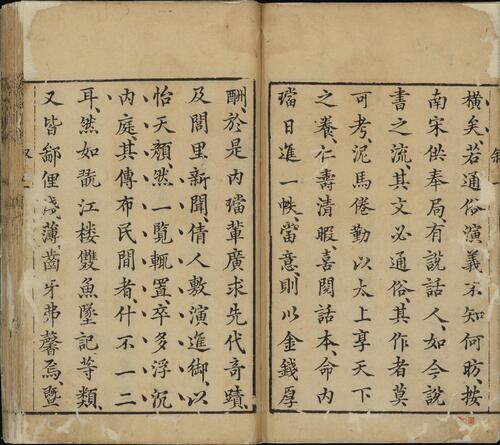 橫矣、若通俗演義不知何昉、按
南宋供奉局有説話人、如今説
書之流、其文必通俗、其作者莫
可考、泥馬倦勤、以太上享天下
之養、仁壽清暇、喜閱話本、命內
璫日進一帙、當意、則以金錢厚
酬、於是內璫輩廣求先代奇蹟、
及閭里新聞、倩人敷演進御、以
怡天顏、然一覽輒置、卒多浮沉
內庭、其傳布民間者、什不一二
耳、然如翫江樓雙魚墜記等類、
又皆鄙俚淺薄、齒牙弗馨焉、暨